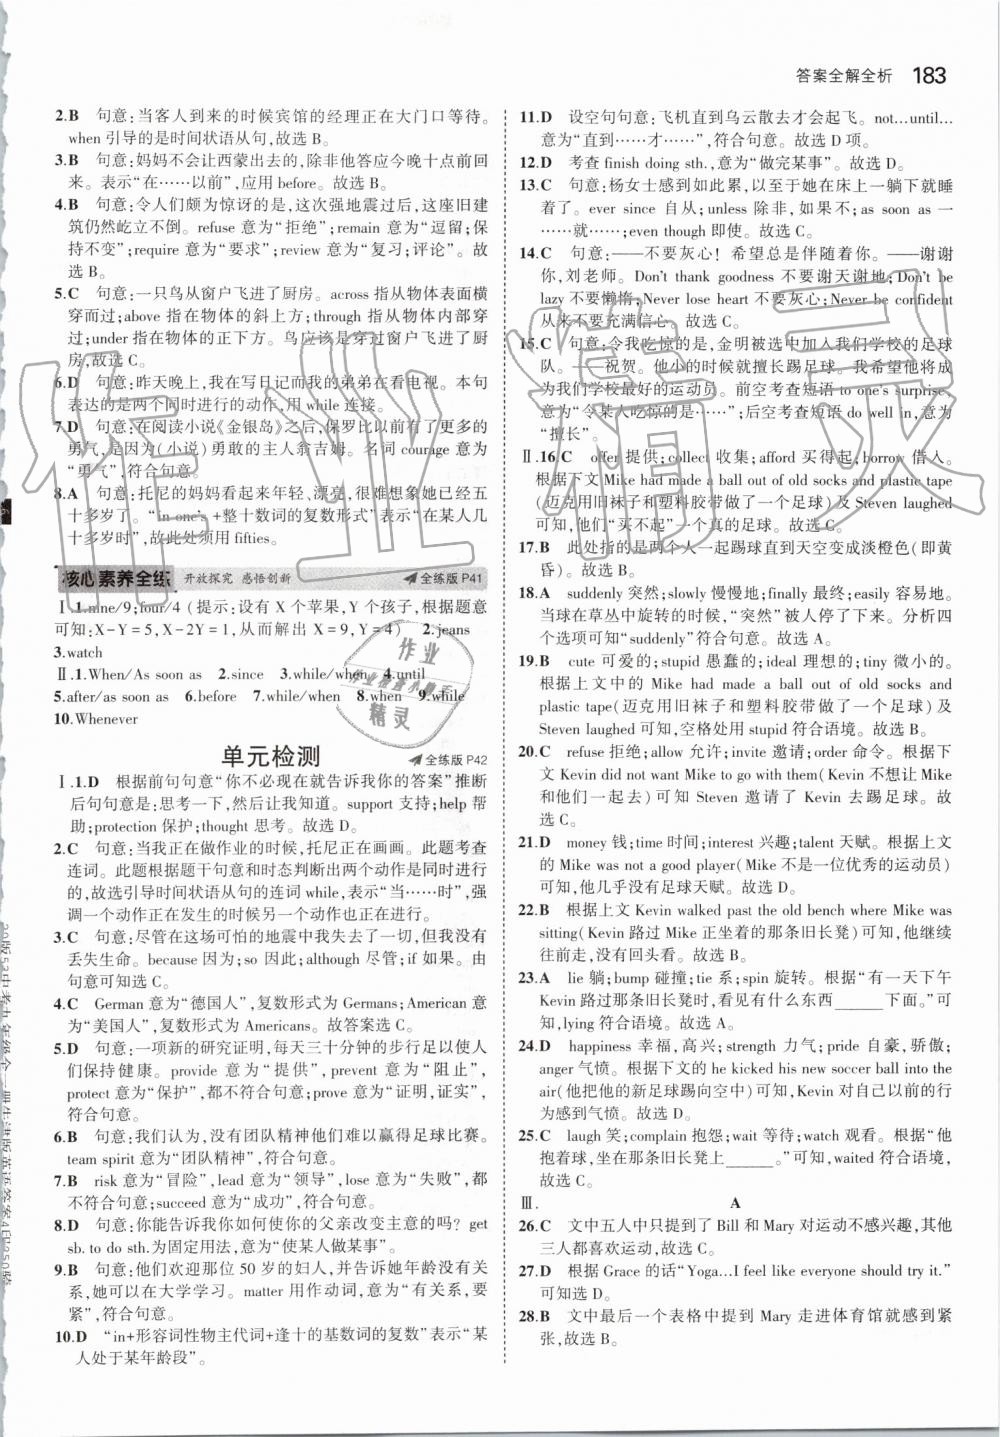 答案全解全析 183
2.B 句意:当客人到来的时候宾馆的经理正在大门口等待。
when 引导的是时间状语从句,故选 B。
3.B 句意:妈妈不会让西蒙出去的,除非他答应今晚十点前回
来。表示“在……以前”,应用 before。故选 B。
4.B 句意:令人们颇为惊讶的是,这次强地震过后,这座旧建
筑仍然屹立不倒。refuse 意为“拒绝”;remain 意为“逗留;保
持不变”;require 意为“要求”;review 意为“复习;评论”。故
选 B。
5.C 句意:一只鸟从窗户飞进了厨房。across 指从物体表面横
穿而过;over 指在物体的斜上方;through 指从物体内部穿
过;under 指在物体的正下方。鸟应该是穿过窗户飞进了厨
房,故选 C。
6.D 句意:昨天晚上,我在写日记而我的弟弟在看电视。本句
表达的是两个同时进行的动作,用 while 连接。
7.D 句意:在阅读小说《金银岛》之后,保罗比以前有了更多的
勇气,是因为(小说)勇敢的主人翁吉姆。名词 courage 意为
“勇气”,符合句意。
8.A 句意:托尼的妈妈看起来年轻、漂亮,很难想象她已经五
十多岁了。“in one's+整十数词的复数形式”表示“在某人几
十多岁时”,故此处须用 fifties。
核心素养全练 开放探究 感悟创新 全练版 P41
Ⅰ.1.nine/9;four/4 (提示:设有 X 个苹果,Y 个孩子,根据题意
可知:X-Y=5,X-2Y=1,从而解出 X=9,Y=4) 2.jeans
3.watch
Ⅱ.1.When/As soon as 2.since 3.while/when 4.until
5.after/as soon as 6.before 7.while/when 8.when 9.while
10.Whenever
单元检测 全练版 P42
Ⅰ.1.D 根据前句句意“你不必现在就告诉我你的答案”推断
后句句意是:思考一下,然后让我知道。support 支持;help 帮
助;protection 保护;thought 思考。故选 D。
2.C 句意:当我正在做作业的时候,托尼正在画画。此题考查
连词。此题根据题干句意和时态判断出两个动作是同时进行
的,故选引导时间状语从句的连词 while,表示“当……时”,强
调一个动作正在发生的时候另一个动作也正在进行。
3.C 句意:尽管在这场可怕的地震中我失去了一切,但我没有
丢失生命。because 因为;although 尽管;if 如果;until 直到。由
句意可知选 C。
4.C German 意为“德国人”,复数形式为 Germans;American 意
为“美国人”,复数形式为 Americans。故答案选 C。
5.D 句意:一项新的研究证明,每天三十分钟的步行足以使人
们保持健康。provide 意为“提供”,prevent 意为“阻止”,
protect 意为“保护”,都不符合句意;prove 意为“证明,证实”,
符合句意。
6.B 句意:我们认为,没有团队精神他们难以赢得足球比赛。
team spirit 意为“团队精神”,符合句意。
7.B risk 意为“冒险”,lead 意为“领导”,lose 意为“失败”,都
不符合句意;succeed 意为“成功”,符合句意。
8.D 句意:你能告诉我你如何使你的父亲改变主意的吗? get
sb. to do sth.为固定用法,意为“使某人做某事”。
9.B 句意:他们欢迎那位 50 岁的妇人,并告诉她年龄没有关
系,她可以在大学学习。matter 用作动词,意为“有关系,要
紧”,符合句意。
10.D “in+形容词性物主代词+逢十的基数词的复数”表示“某
人处于某年龄段”。
11.D 设空句句意:飞机直到乌云散去才会起飞。not...until...
意为“直到……才……”,符合句意。故选 D 项。
12.D 考查 finish doing sth.,意为“做完某事”。故选 D。
13.C 句意:杨女士感到如此累,以至于她在床上一躺下就睡
着了。ever since 自从;unless 除非,如果不;as soon as 一
……就……;even though 即使。故选 C。
14.C 句意:——不要灰心!希望总是伴随着你。——谢谢
你,刘老师。Don't thank goodness 不要谢天谢地;Don't be
lazy 不要懒惰;Never lose heart 不要灰心;Never be confident
从来不要充满信心。故选 C。
15.C 句意:令我吃惊的是,金明被选中加入我们学校的足球
队。——祝贺。他小的时候就擅长踢足球。我希望他将成
为我们学校最好的运动员。前空考查短语 to one's surprise,
意为“令某人吃惊的是……”;后空考查短语 do well in,意为
“擅长”。
Ⅱ.16.C offer 提供;collect 收集;afford 买得起;borrow 借入。
根据下文 Mike had made a ball out of old socks and plastic tape
(迈克用旧袜子和塑料胶带做了一个足球)及 Steven laughed
可知,他们“买不起”一个真的足球。故选 C。
17.B 此处指的是两个人一起踢球直到天空变成淡橙色(即黄
昏)。故选 B。
18.A suddenly 突然;slowly 慢慢地;finally 最终;easily 容易地。
当球在草丛中旋转的时候,“突然”被人停了下来。分析四
个选项可知“suddenly”符合句意。故选 A。
19.B cute 可爱的;stupid 愚蠢的;ideal 理想的;tiny 微小的。
根据上文中的 Mike had made a ball out of old socks and
plastic tape(迈克用旧袜子和塑料胶带做了一个足球)及
Steven laughed 可知,空格处用 stupid 符合语境。故选 B。
20.C refuse 拒绝;allow 允许;invite 邀请;order 命令。根据下
文 Kevin did not want Mike to go with them(Kevin 不想让 Mike
和他们一起去)可知 Steven 邀请了 Kevin 去踢足球。故
选 C。
21.D money 钱;time 时间;interest 兴趣;talent 天赋。根据上文
的 Mike was not a good player(Mike 不是一位优秀的运动员)
可知,他几乎没有足球天赋。故选 D。
22.B 根据上文 Kevin walked past the old bench where Mike was
sitting(Kevin 路过 Mike 正坐着的那条旧长凳),他继续
往前走,没有回头看。故选 B。
23.A lie 躺;bump 碰撞;tie 系;spin 旋转。根据“有一天下午
Kevin 路过那条旧长凳时,看见有什么东西______下面。”可
知,lying 符合语境。故选 A。
24.D happiness 幸福,高兴;strength 力气;pride 自豪,骄傲;
anger 气愤。根据下文的 he kicked his new soccer ball into the
air(他把他的新足球踢向空中)可知,Kevin 对自己以前的行
为感到气愤。故选 D。
25.C laugh 笑;complain 抱怨;wait 等待;watch 观看。根据“他
抱着球,坐在旧长凳上______。”可知,waited 符合语境,
故选 C。
Ⅲ. A
26.C 文中五人中只提到了 Bill 和 Mary 对运动不感兴趣,其他
三人都喜欢运动,故选 C。
27.D 根据 Grace 的话“Yoga...I feel like everyone should try it.”
可知选 D。
28.B 文中最后一个表格中提到 Mary 走进体育馆就感到紧
张,故选 B。
作业精灵
作业
作业检查小助手
精灵